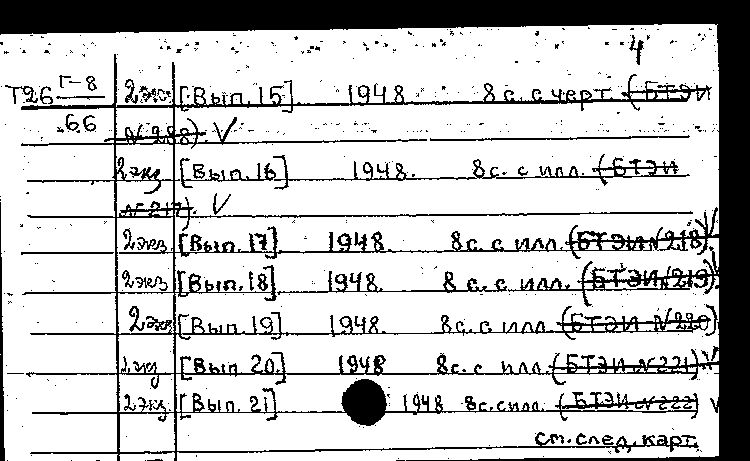 4
Т26 Г-8/66 2 экз. [Вып. 15]. 1948 8 с. с черт. (БТЭИ
№ 288). V
2 экз [Вып. 16] 1948. 8 с. с илл. (БТЭИ
№ 217). V
2 экз [Вып. 17] 1948. 8 с. с илл. (БТЭИ № 218). V
2 экз [Вып. 18] 1948. 8 с. с илл. (БТЭИ № 219) V
2 экз [Вып. 19] 1948. 8 с. с илл. (БТЭИ № 220)
2 экз [Вып. 20.] 1948 8 с. с илл. (БТЭИ № 221) V
2 экз. [Вып. 21] 1948 8 с. с илл. (БТЭИ № 222) V
см. след. карт.